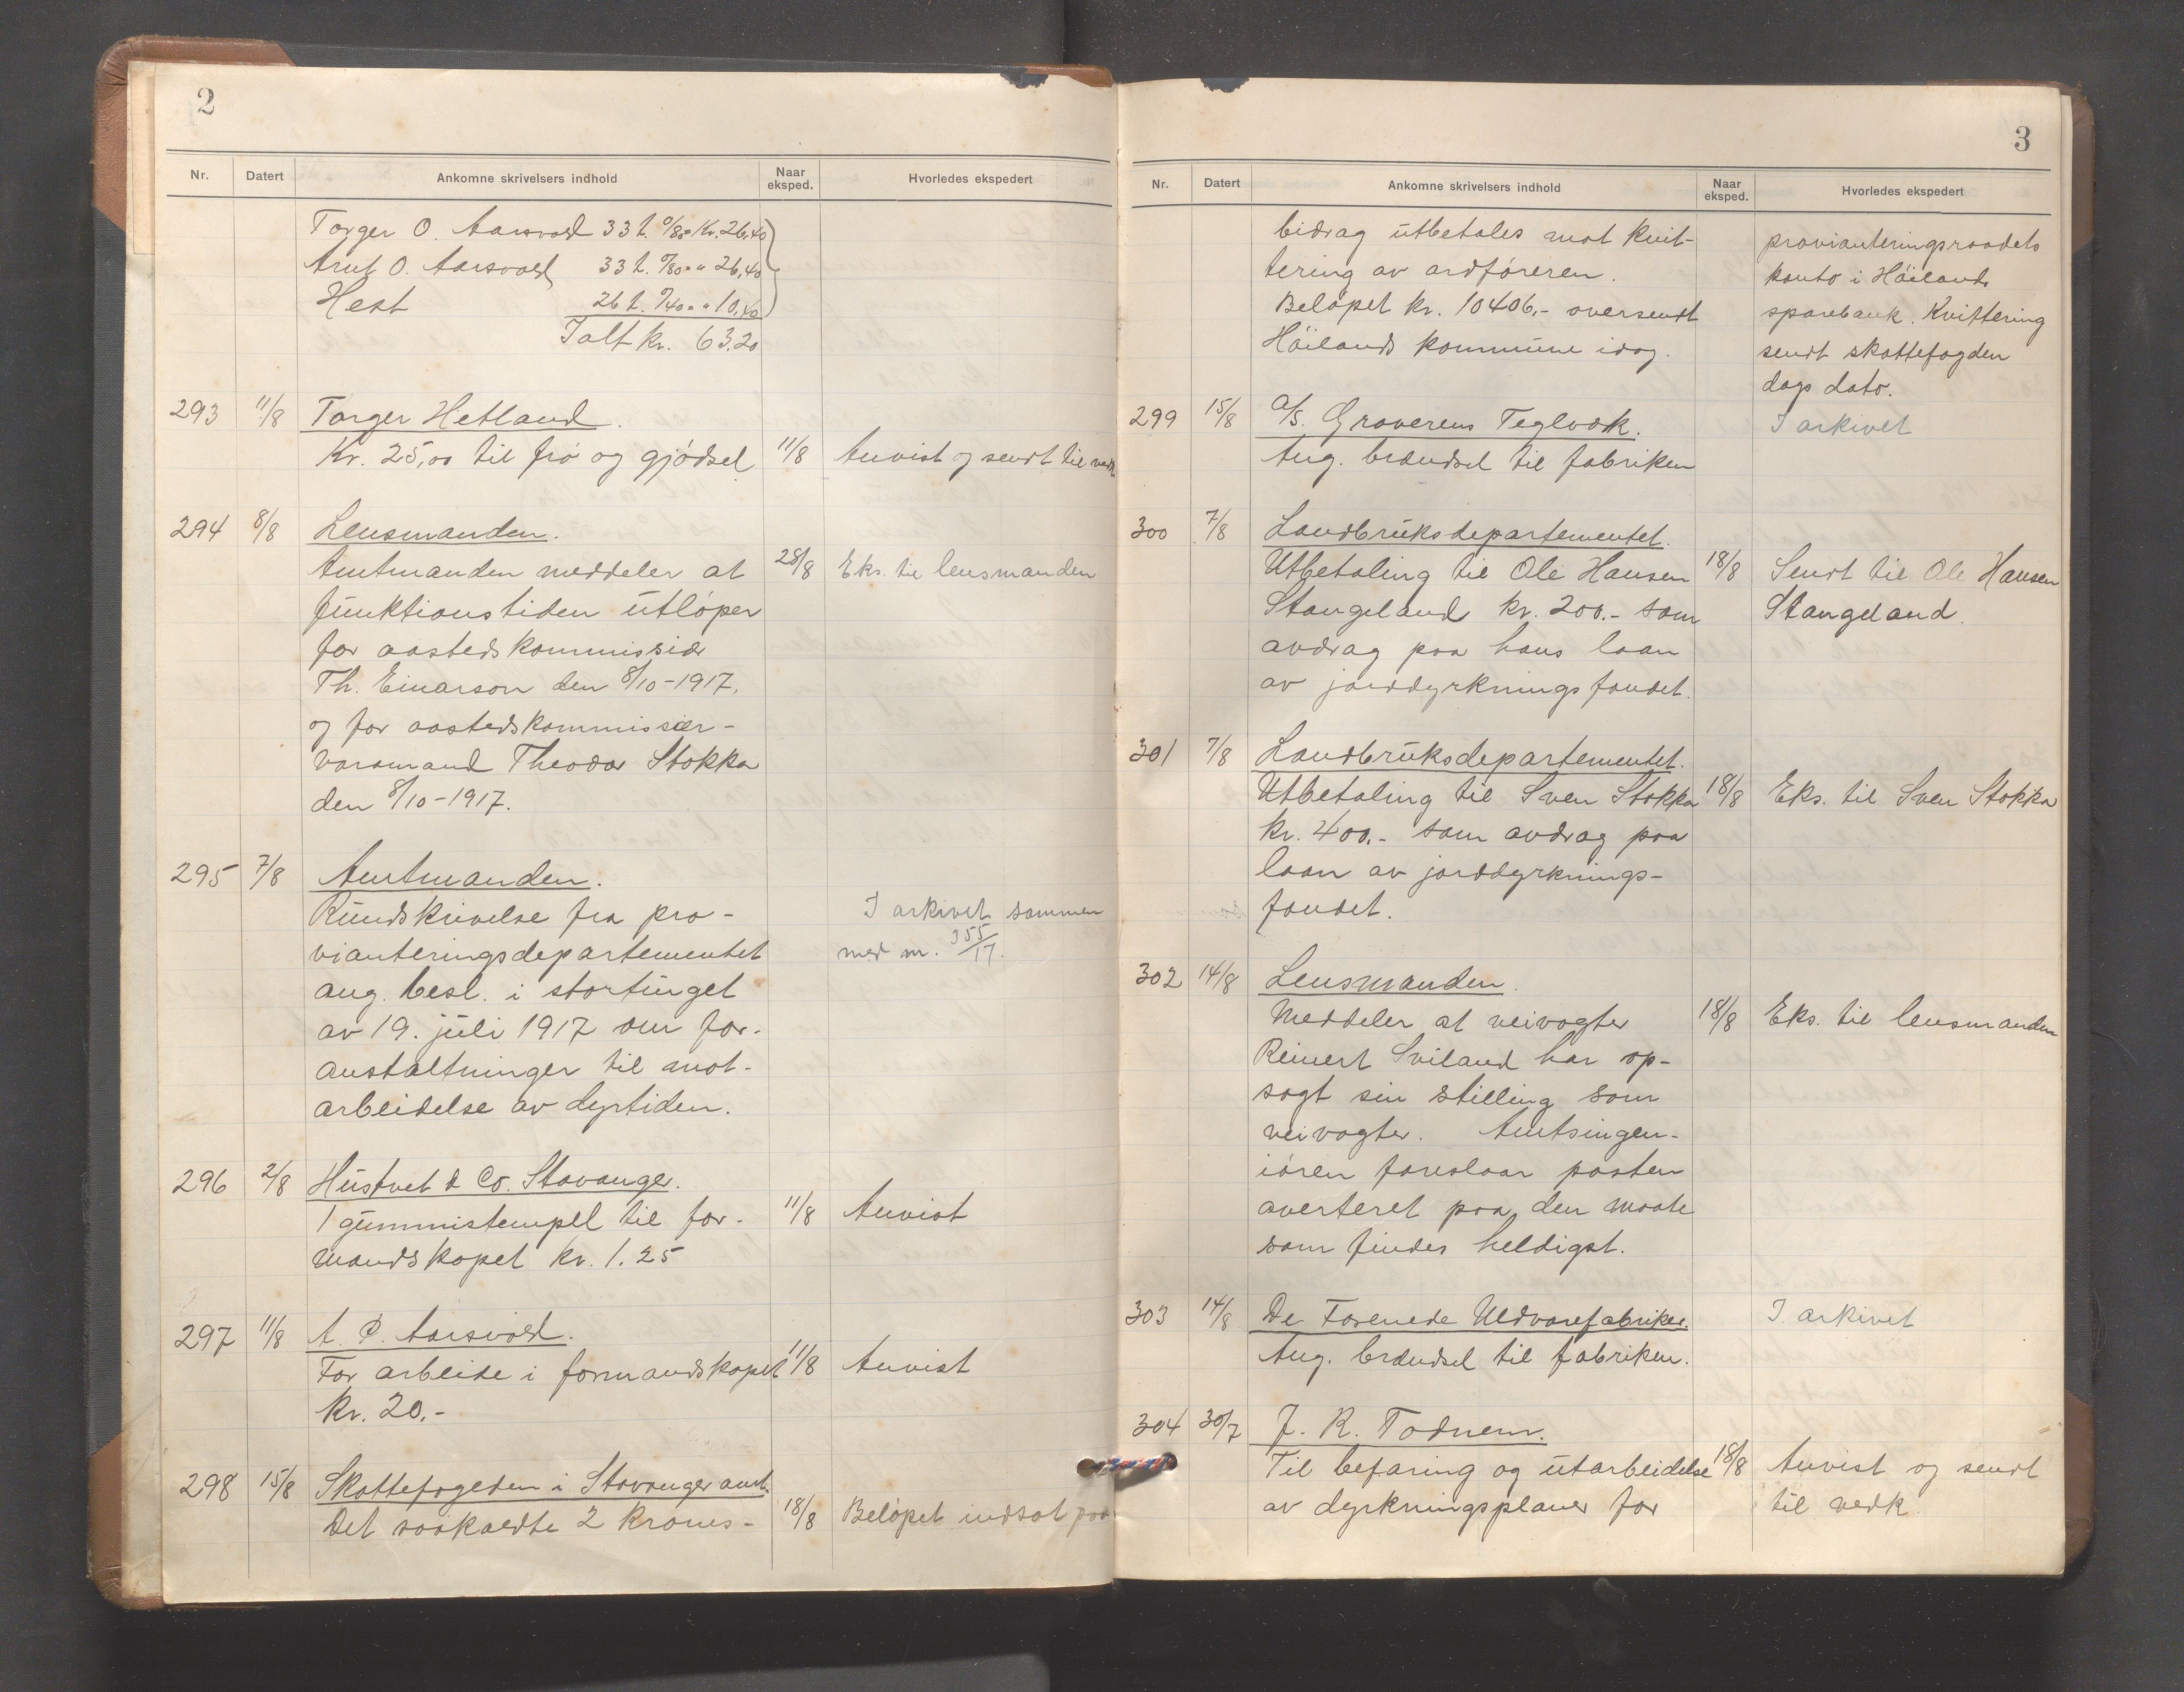 2
Nr. Datert Ankomne skrivelsers indhold Naar eksped. Hvorledes ekspedert
Torger O. Aarsvold 33 t. o/80 = Kr. 26,40
Arnt O. Aarsvold 33 t. o/80 = " 26,40
Hest 26 t. o/40 = " 10,40
Ialt kr. 63,20
293 11/8 Torger Hetland.
Kr. 25,00 til frø og gjödsel 11/8 Anvist og sendt til vedk
294 8/8 Lensmanden.
Amtmanden meddeler at 28/8 Eks. til lensmanden
funktionstiden utlöper
for aastedskommissær
Th. Einarson den 8/10-1917,
og for aastedskommissær-
varamand Theodor Stokka
den 8/10-1917.
295 7/8 Amtmanden.
Rundskrivelse fra pro- I arkivet sammen
vianteringsdepartementet med nr. 355/17.
ang. besl. i stortinget
av 19. juli 1917 om for-
anstaltninger til mot-
arbeidelse av dyrtiden.
296 2/8 Hustvet & Co. Stavanger.
1 gummistempel til for- 11/8 Anvist
mandskapet kr. 1.25
297 11/8 A. P. Aarsvold.
For arbeide i formandskapet 11/8 Anvist
kr. 20,-
298 15/8 Skattefogden i Stavanger amt.
Det saakaldte 2 krones- 18/8 Beløpet indsat paa
3
Nr. Datert Ankomne skrivelsers indhold Naar eksped. Hvorledes ekspedert
bidrag utbetales mot kvit- provianteringsraadets
tering av ordføreren. konto i Höilands
Belöpet kr. 10406,- oversendt sparebank. Kvittering
Höilands kommune idag. sendt skattefogden
dags dato.
299 15/8 A/S. Graverens Teglverk. I arkivet
Ang. brændsel til fabriken
300 7/8 Landbruksdepartementet.
Utbetaling til Ole Hansen 18/8 Sendt til Ole Hansen
Stangeland kr. 200.- som Stangeland.
avdrag paa hans laan
av jorddyrkningsfondet.
301 7/8 Landbruksdepartementet.
Utbetaling til Sven Stokka 18/8 Eks. til Sven Stokka
kr. 400,- som avdrag paa
laan av jorddyrknings-
fondet.
302 14/8 Lensmanden.
Meddeler at veivogter 18/8 Eks. til lensmanden
Reinert Sviland har op-
sagt sin stilling som
veivogter. Amtsingen-
iören foreslaar posten
averteret paa den maate
som findes heldigst.
303 14/8 De Forenede Uldvarefabriker. I arkivet
Ang. brændsel til fabriken.
304 30/7 J. R. Todnem.
Til befaring og utarbeidelse 18/8 Anvist og sendt
av dyrkningsplaner for til vedk.